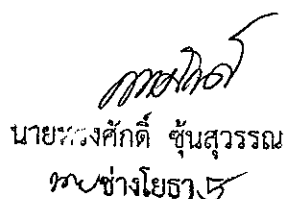 นายทรงศักดิ์ ชุ้นสุวรรณ
นายช่างโยธา 5